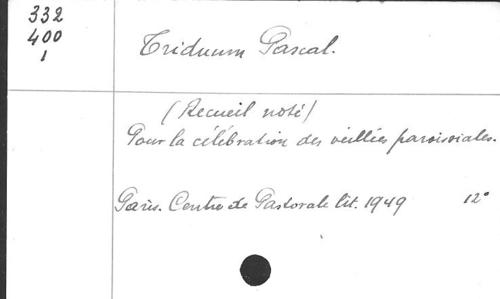 332
400
1
Triduum Pascal.
(Recueil noté)
Pour la célébration des veillées paroissiales.
Paris. Centre de Pastorale lit. 1949 12°